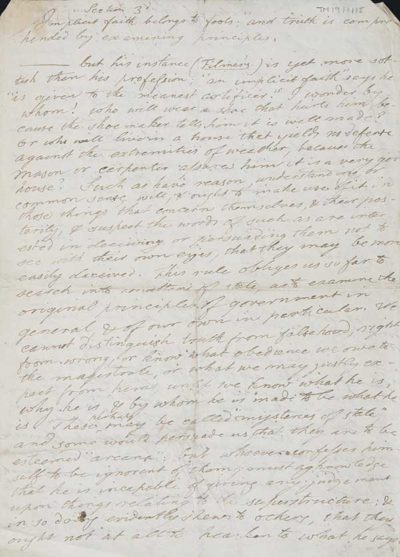 Section 3d
TM 19/1/115
"Implicit faith belongs to fools", and truth is compre
hended by examining principles.
—— but his instance (Filmers) is yet more sot-
tish than his profession; "an implicit faith says he
"is given to the meanest artificer." I wonder by
whom! who will wear a shoe that hurts him be
cause the shoe maker tells him it is well made?
or who will live in a house that yields no defence
against the extremities of weather, because the
mason or carpenter assures him it is a very good
house? Such as have reason, understanding, or
common sense, will, & ought to make use of it in
those things that concern themselves, & their pos-
terity, & suspect the words of such as are inter
ested in deceiving or persuading them not to
see with their own eyes, that they may be more
easily deceived. This rule obliges us so far to
search into matters of state, as to examine the
original principles of government in
general, & of our own in particular. We
cannot distinguish truth from falsehood, right
from wrong, or know what obedience we owe to
the magistrate, or what we may justly ex-
pect from him, until we know what he is,
why he is, & by whom he is made to be what he
is. These may be called "mysteries of state"
and some would persuade us that they are to be
esteemed "arcana"; but whoever confesses him
self to be ignorant of them, must acknowledge
that he is incapable of giving any judgement
upon things relating to the superstructure, &
in so doing evidently shews to others, that they
ought not at all to hearken to what he says